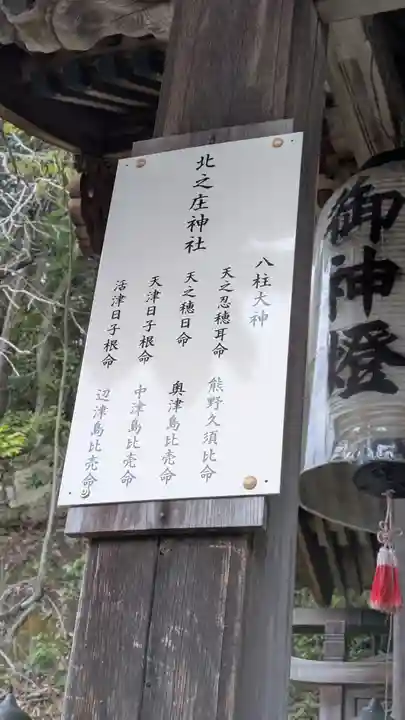 北之庄神社
八柱大神
天之忍穂耳命
天之穂日命
天津日子根命
活津日子根命
熊野久須比命
奥津島比売命
中津島比売命
辺津島比売命
御神燈